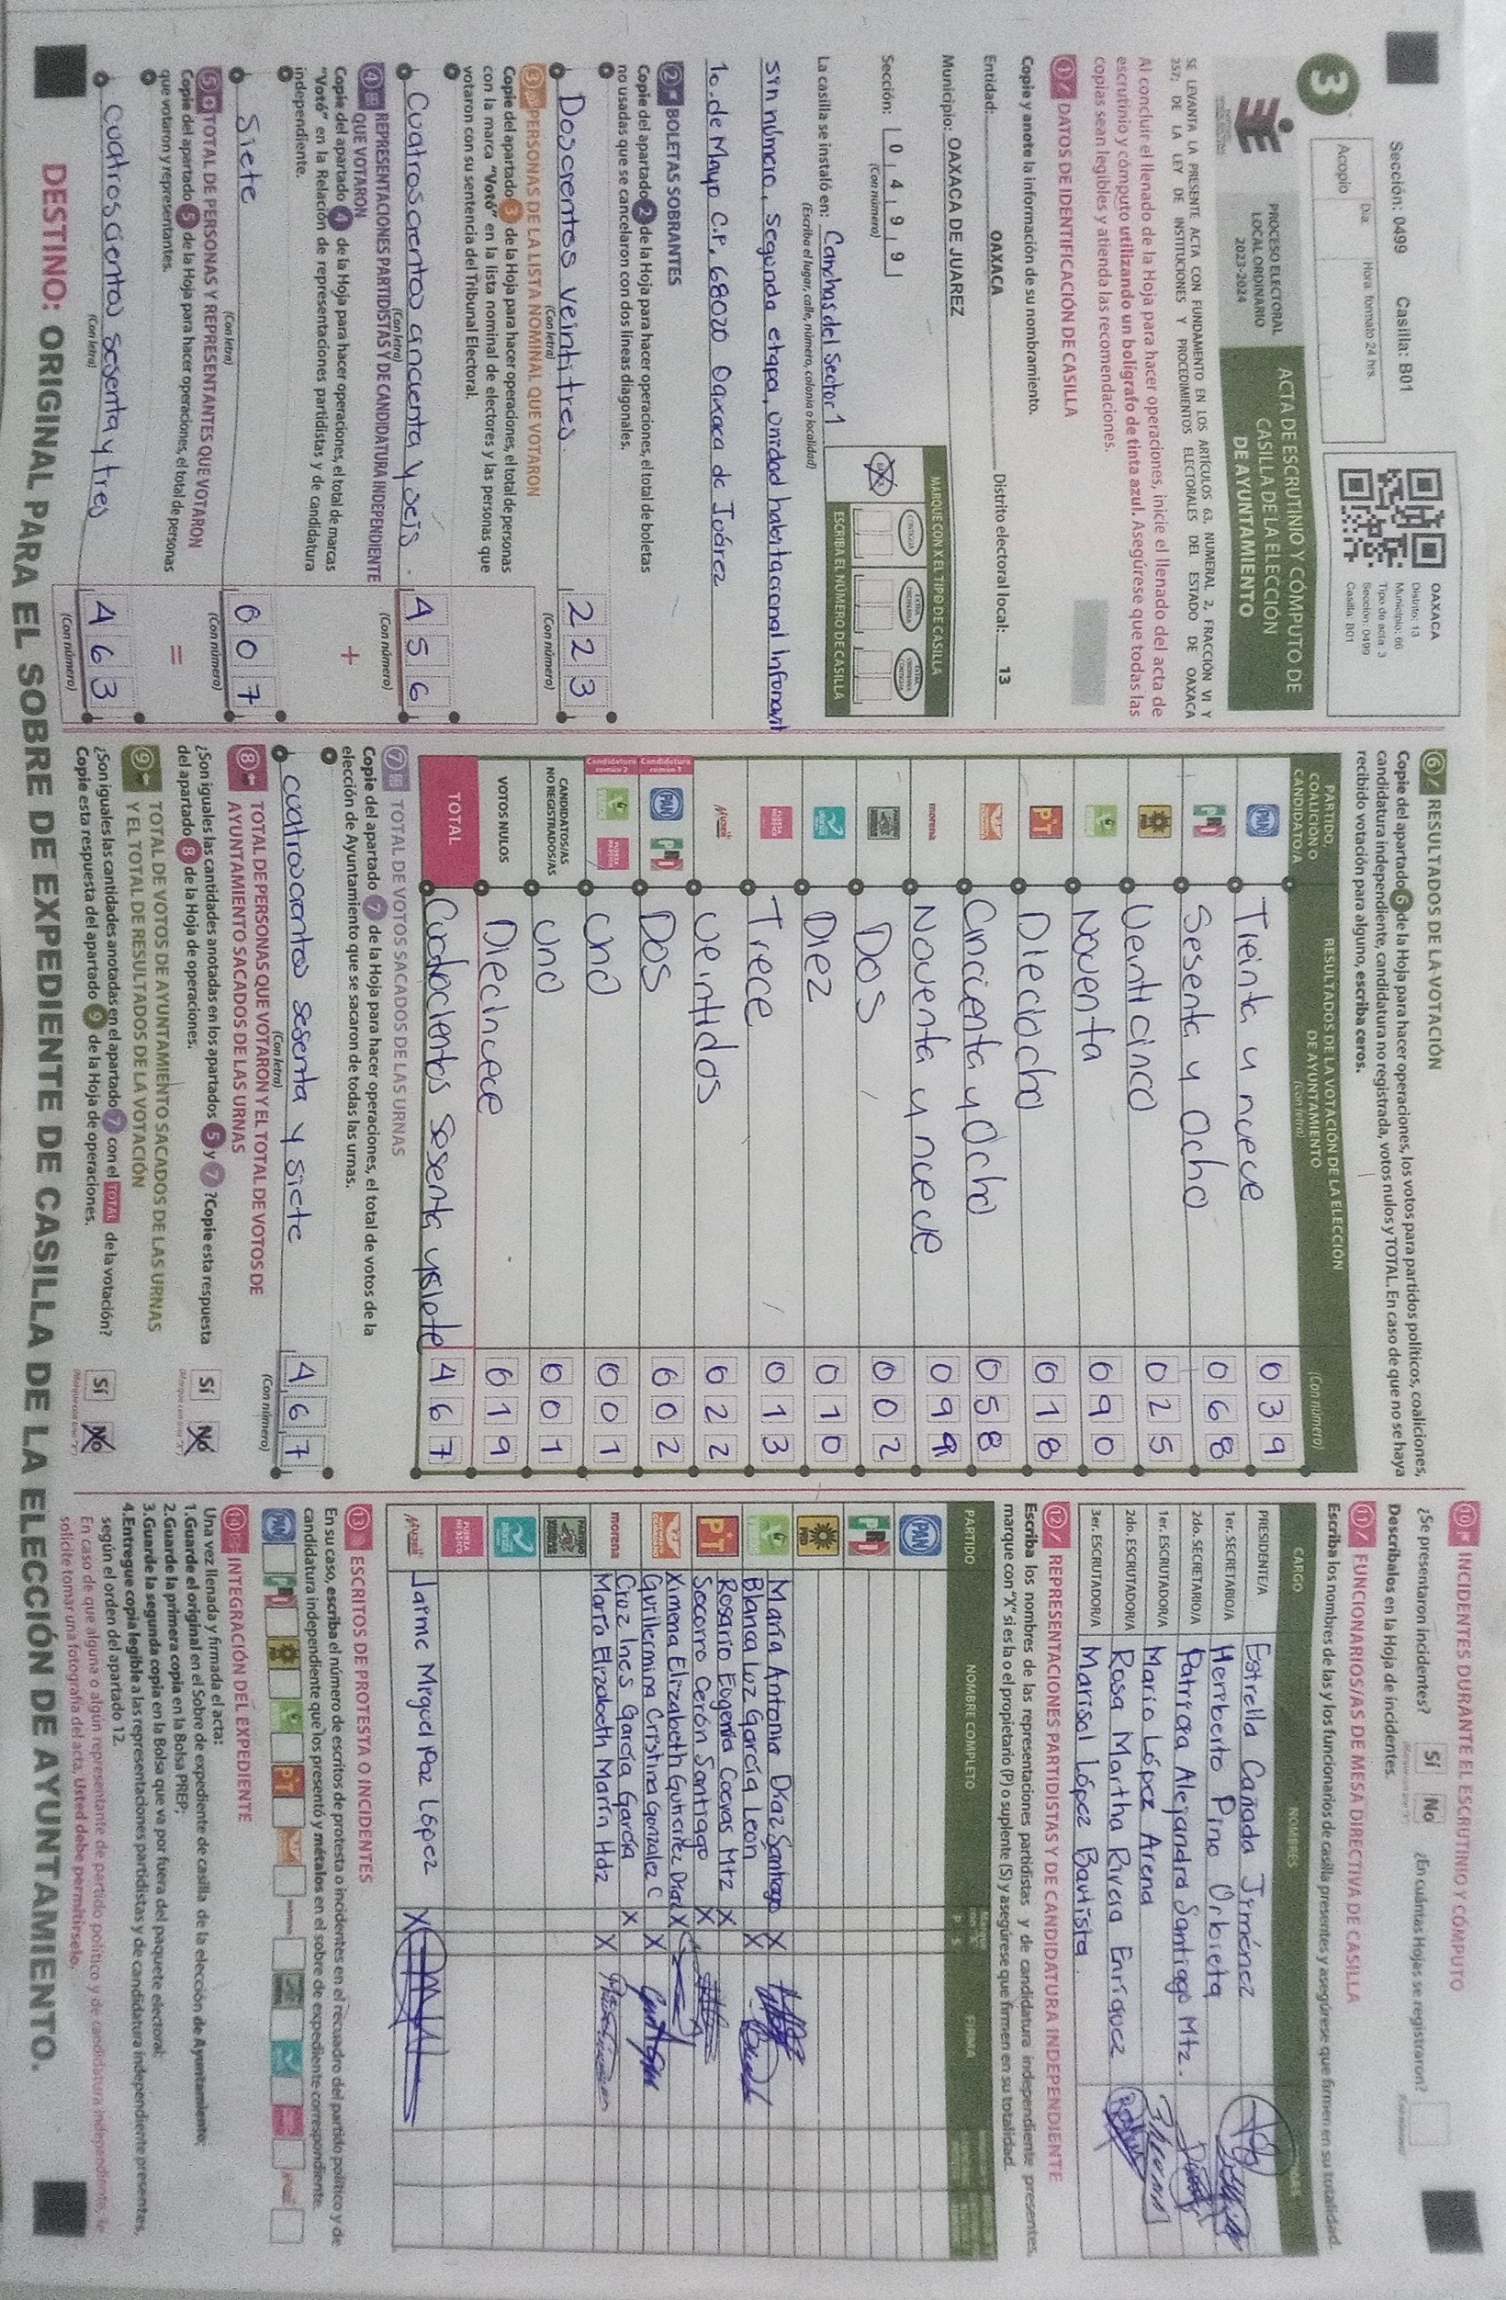 Sección: 0499 Casilla: B01
Día: Hora formato 24 hrs.
Acopio
OAXACA
Distrito: 13
Municipio: 66
Tipo de acta: 3
Sección: 0499
Casilla: B01
3
PROCESO ELECTORAL
LOCAL ORDINARIO
2023-2024
ACTA DE ESCRUTINIO Y CÓMPUTO DE
CASILLA DE LA ELECCIÓN
DE AYUNTAMIENTO
SE LEVANTA LA PRESENTE ACTA CON FUNDAMENTO EN LOS ARTÍCULOS 63, NUMERAL 2, FRACCIÓN VI Y
257; DE LA LEY DE INSTITUCIONES Y PROCEDIMIENTOS ELECTORALES DEL ESTADO DE OAXACA
Al concluir el llenado de la Hoja para hacer operaciones, inicie el llenado del acta de
escrutinio y cómputo utilizando un bolígrafo de tinta azul. Asegúrese que todas las
copias sean legibles y atienda las recomendaciones.
1 DATOS DE IDENTIFICACIÓN DE CASILLA
Copie y anote la información de su nombramiento.
Entidad: OAXACA Distrito electoral local: 13
Municipio: OAXACA DE JUAREZ
Sección: 0 4 9 9
(Con número)
MARQUE CON X EL TIPO DE CASILLA
ESCRIBA EL NÚMERO DE CASILLA
La casilla se instaló en: Canchas del Sector 1
(Escriba el lugar, calle, número, colonia o localidad)
sin número, Segunda etapa, Unidad habitacional Infonavit
1o. de Mayo C.P. 68020 Oaxaca de Juárez
2 BOLETAS SOBRANTES
Copie del apartado 2 de la Hoja para hacer operaciones, el total de boletas
no usadas que se cancelaron con dos líneas diagonales.
Doscientos veintitres. 2 2 3
(Con letra) (Con número)
3 PERSONAS DE LA LISTA NOMINAL QUE VOTARON
Copie del apartado 3 de la Hoja para hacer operaciones, el total de personas
con la marca "Votó" en la lista nominal de electores y las personas que
votaron con su sentencia del Tribunal Electoral.
Cuatroscientos cincuenta y seis. 4 5 6
(Con letra) (Con número)
4 REPRESENTACIONES PARTIDISTAS Y DE CANDIDATURA INDEPENDIENTE
QUE VOTARON
Copie del apartado 4 de la Hoja para hacer operaciones, el total de marcas
"Votó" en la Relación de representaciones partidistas y de candidatura
independiente.
+
Siete 0 0 7
(Con letra) (Con número)
5 TOTAL DE PERSONAS Y REPRESENTANTES QUE VOTARON
Copie del apartado 5 de la Hoja para hacer operaciones, el total de personas
que votaron y representantes.
=
cuatroscientos sesenta y tres 4 6 3
(Con letra) (Con número)
6 RESULTADOS DE LA VOTACIÓN
Copie del apartado 6 de la Hoja para hacer operaciones, los votos para partidos políticos, coaliciones,
candidatura independiente, candidatura no registrada, votos nulos y TOTAL. En caso de que no se haya
recibido votación para alguno, escriba ceros.
PARTIDO,
COALICIÓN O
CANDIDATO/A
RESULTADOS DE LA VOTACIÓN DE LA ELECCIÓN
DE AYUNTAMIENTO
(Con letra) (Con número)
PAN Treinta y nueve 0 3 9
PRI Sesenta y Ocho 0 6 8
Veinti cinco 0 2 5
Noventa 0 9 0
PT Dieciocho 0 1 8
Cincuenta y Ocho 0 5 8
morena Noventa y nueve 0 9 9
Dos 0 0 2
Diez 0 1 0
Trece 0 1 3
Veintidos 0 2 2
Candidatura común 1 PAN PRI Dos 0 0 2
Candidatura común 2 Uno 0 0 1
CANDIDATOS/AS
NO REGISTRADOS/AS Uno 0 0 1
VOTOS NULOS Diecinueve 0 1 9
TOTAL Cuatrocientos Sesenta y siete 4 6 7
7 TOTAL DE VOTOS SACADOS DE LAS URNAS
Copie del apartado 7 de la Hoja para hacer operaciones, el total de votos de la
elección de Ayuntamiento que se sacaron de todas las urnas.
cuatroscientos sesenta y siete 4 6 7
(Con letra) (Con número)
8 TOTAL DE PERSONAS QUE VOTARON Y EL TOTAL DE VOTOS DE
AYUNTAMIENTO SACADOS DE LAS URNAS
¿Son iguales las cantidades anotadas en los apartados 5 y 7 ?Copie esta respuesta
del apartado 8 de la Hoja de operaciones.
Sí No
9 TOTAL DE VOTOS DE AYUNTAMIENTO SACADOS DE LAS URNAS
Y EL TOTAL DE RESULTADOS DE LA VOTACIÓN
¿Son iguales las cantidades anotadas en el apartado 7 con el TOTAL de la votación?
Copie esta respuesta del apartado 9 de la Hoja de operaciones.
Sí No
10 INCIDENTES DURANTE EL ESCRUTINIO Y CÓMPUTO
¿Se presentaron incidentes? Sí No ¿En cuántas Hojas se registraron?
Descríbalos en la Hoja de incidentes.
11 FUNCIONARIOS/AS DE MESA DIRECTIVA DE CASILLA
Escriba los nombres de las y los funcionarios de casilla presentes y asegúrese que firmen en su totalidad.
CARGO NOMBRES
PRESIDENTE/A Estrella Cañada Jiménez
1er. SECRETARIO/A Herlberto Pino Orbieta
2do. SECRETARIO/A Patricia Alejandra Santiago Mtz.
1er. ESCRUTADOR/A Mario López Arena
2do. ESCRUTADOR/A Rosa Martha Rivera Enríquez
3er. ESCRUTADOR/A Marisol López Bautista.
12 REPRESENTACIONES PARTIDISTAS Y DE CANDIDATURA INDEPENDIENTE
Escriba los nombres de las representaciones partidistas y de candidatura independiente presentes,
marque con "X" si es la o el propietario (P) o suplente (S) y asegúrese que firmen en su totalidad.
PARTIDO NOMBRE COMPLETO P S FIRMA
PAN
PRI
PRD
María Antonia Díaz Santiago X
Blanca Luz García León X
PT Rosario Eugenia Cuevas Mtz X
Socorro Cerón Santiago X
Ximena Elizabeth Gutierrez Diaz X
Guillermina Cristina Gonzalez C X
morena Cruz Ines García García X
María Elizabeth Marín Hdz X
Jaime Miguel Paz López X
13 ESCRITOS DE PROTESTA O INCIDENTES
En su caso, escriba el número de escritos de protesta o incidentes en el recuadro del partido político y de
candidatura independiente que los presentó y métalos en el sobre de expediente correspondiente.
14 INTEGRACIÓN DEL EXPEDIENTE
Una vez llenada y firmada el acta:
1.Guarde el original en el Sobre de expediente de casilla de la elección de Ayuntamiento;
2.Guarde la primera copia en la Bolsa PREP;
3.Guarde la segunda copia en la Bolsa que va por fuera del paquete electoral;
4.Entregue copia legible a las representaciones partidistas y de candidatura independiente presentes,
según el orden del apartado 12.
En caso de que alguna o algún representante de partido político y de candidatura independiente, le
solicite tomar una fotografía del acta, Usted debe permitírselo.
DESTINO: ORIGINAL PARA EL SOBRE DE EXPEDIENTE DE CASILLA DE LA ELECCIÓN DE AYUNTAMIENTO.